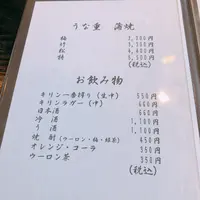 うな重 蒲焼
梅 2,500円
竹
松
特
(税込)
お飲み物
キリン一番搾り(生中) 550円
キリンラガー(中) 660円
日本酒 660円
冷酒 1,100円
う酒 1,100円
焼酎(ウーロン・梅・緑茶) 550円
オレンジ・コーラ 350円
ウーロン茶 350円
(税込)